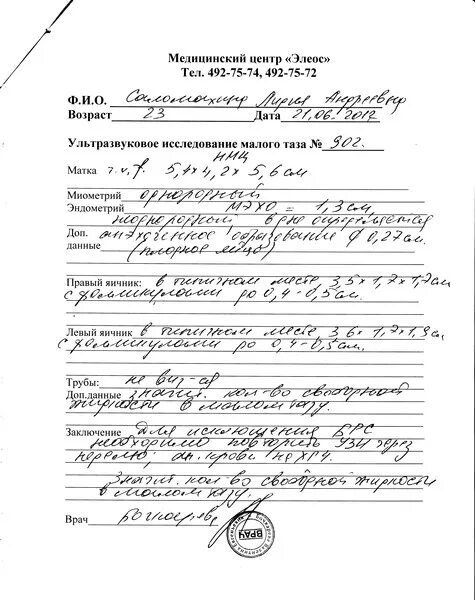 Медицинский центр «Элеос»
Тел. 492-75-74, 492-75-72
Ф.И.О. Саломахина Лидия Андреевна
Возраст 23 Дата 21.06.2012
Ультразвуковое исследование малого таза № 902.
НМЦ
Матка 5,1х4,2х5,6см
Миометрий однородный
Эндометрий МЭХО = 1,3см,
неоднородный, в нем определяется
Доп. анэхогенное образование ф 0,27см.
данные (плодное яйцо)
Правый яичник: в типичном месте 3,5х1,7х1,7см
с фолликулами до 0,4-0,5см.
Левый яичник в типичном месте 3,6х1,7х1,9см
с фолликулами до 0,4-0,5см.
Трубы: не виз-ся
Доп.данные значит. кол-во свободной
жидкости в малом тазу.
Заключение Для исключения БРС
необходимо повторить УЗИ через
неделю; ан. крови на ХГЧ.
Значит. кол-во свободной жидкости
в малом тазу.
Врач
ВРАЧ